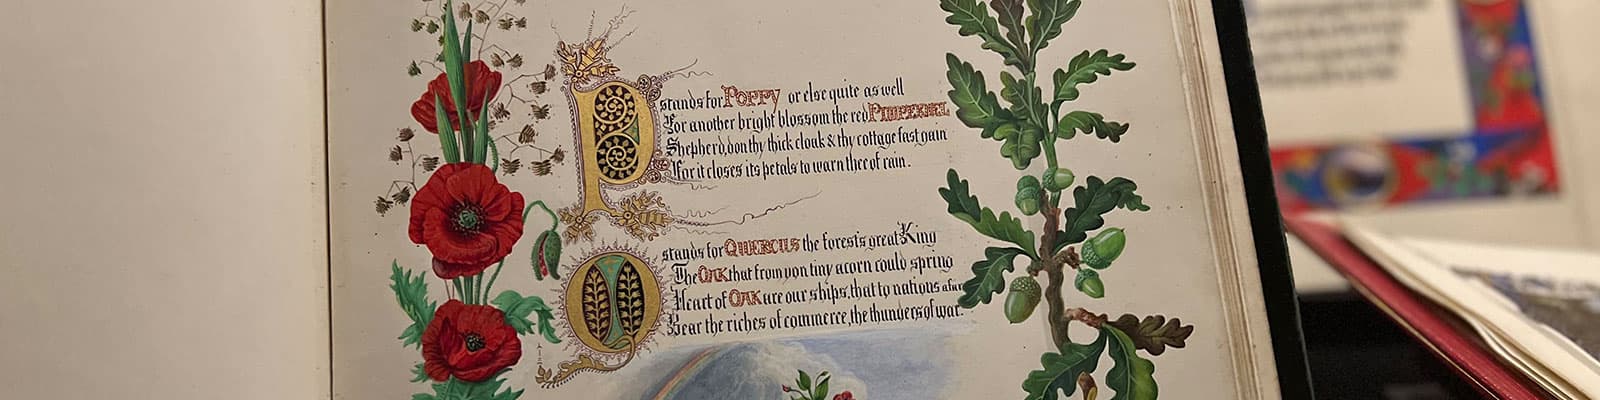 P stands for POPPY or else quite as well
For another bright blossom the red PIMPERNEL
Shepherd, don thy thick cloak & thy cottage fast gain
For it closes its petals to warn thee of rain.
Q stands for QUERCUS the forest's great King
The OAK that from yon tiny acorn could spring
Heart of OAK are our ships, that to nations afar
Bear the riches of commerce, the thunders of war.